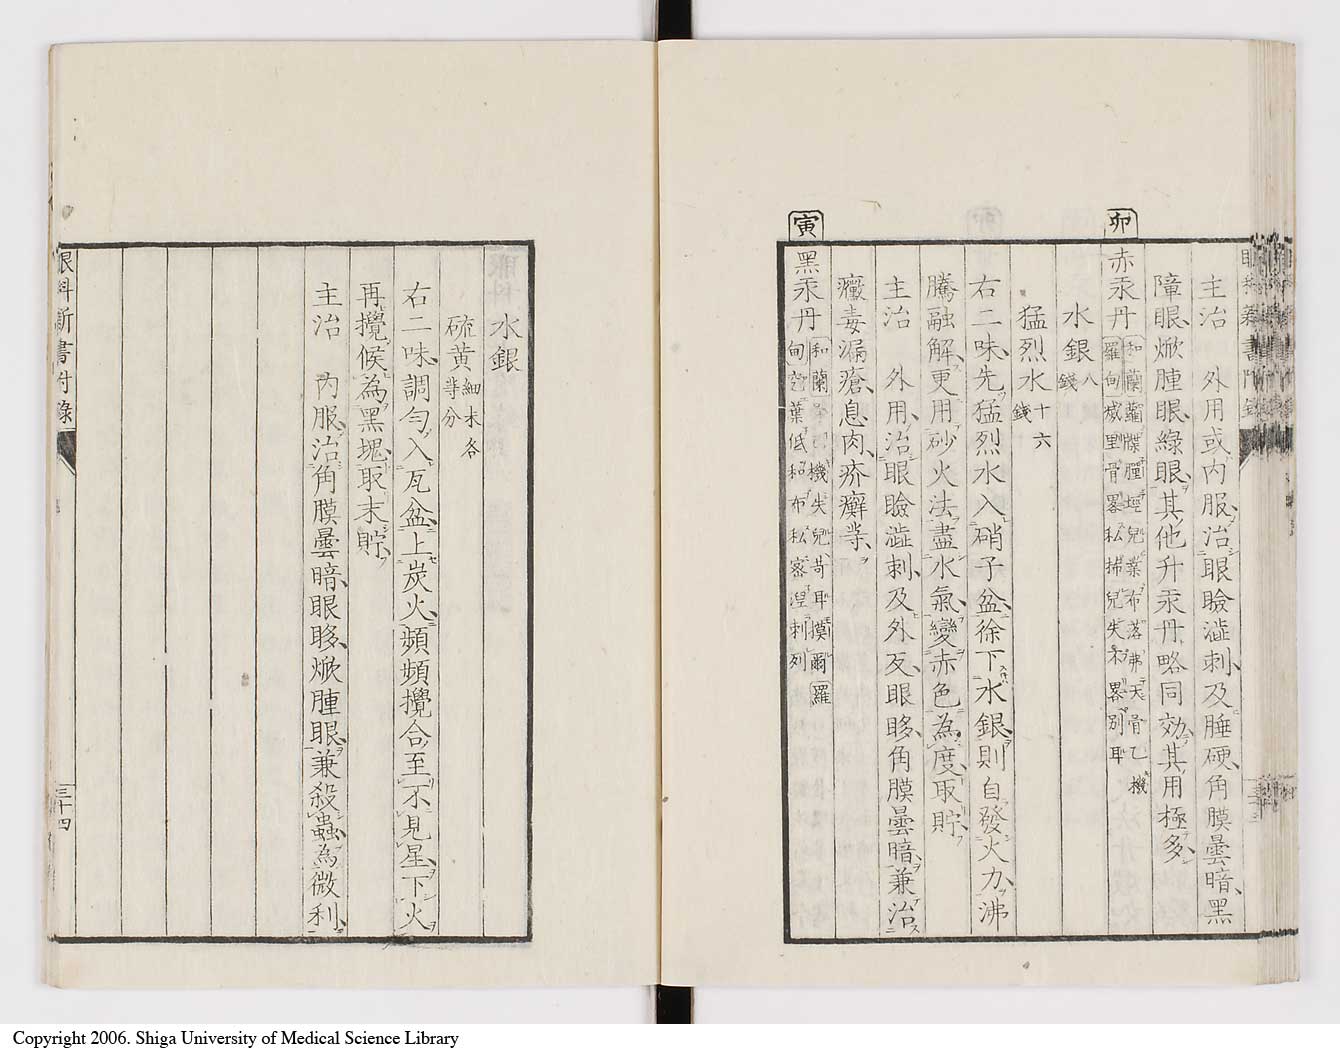 主治 外用或內服治眼瞼澁刺及腄硬角膜曇暗黑
障眼焮腫眼綠眼其他升汞丹略同効其用極多
卯
赤汞丹
水銀 八錢
猛烈水 十六錢
右二味先猛烈水入硝子盆徐下水銀則自發火力沸
騰融解更用砂火法盡水氣變赤色為度取貯
主治 外用治眼瞼澁刺及外叐眼眵角膜曇暗兼治
黴毒漏瘡息肉疥癬等
寅
黑汞丹
水銀
硫黄 細末各等分
右二味調勻入瓦盆上炭火頻頻攪合至不見星下火
再攪候為黑塊取末貯
主治 內服治角膜曇暗眼眵焮腫眼兼殺蟲為微利
眼科新書附錄
三十四
Copyright 2006. Shiga University of Medical Science Library